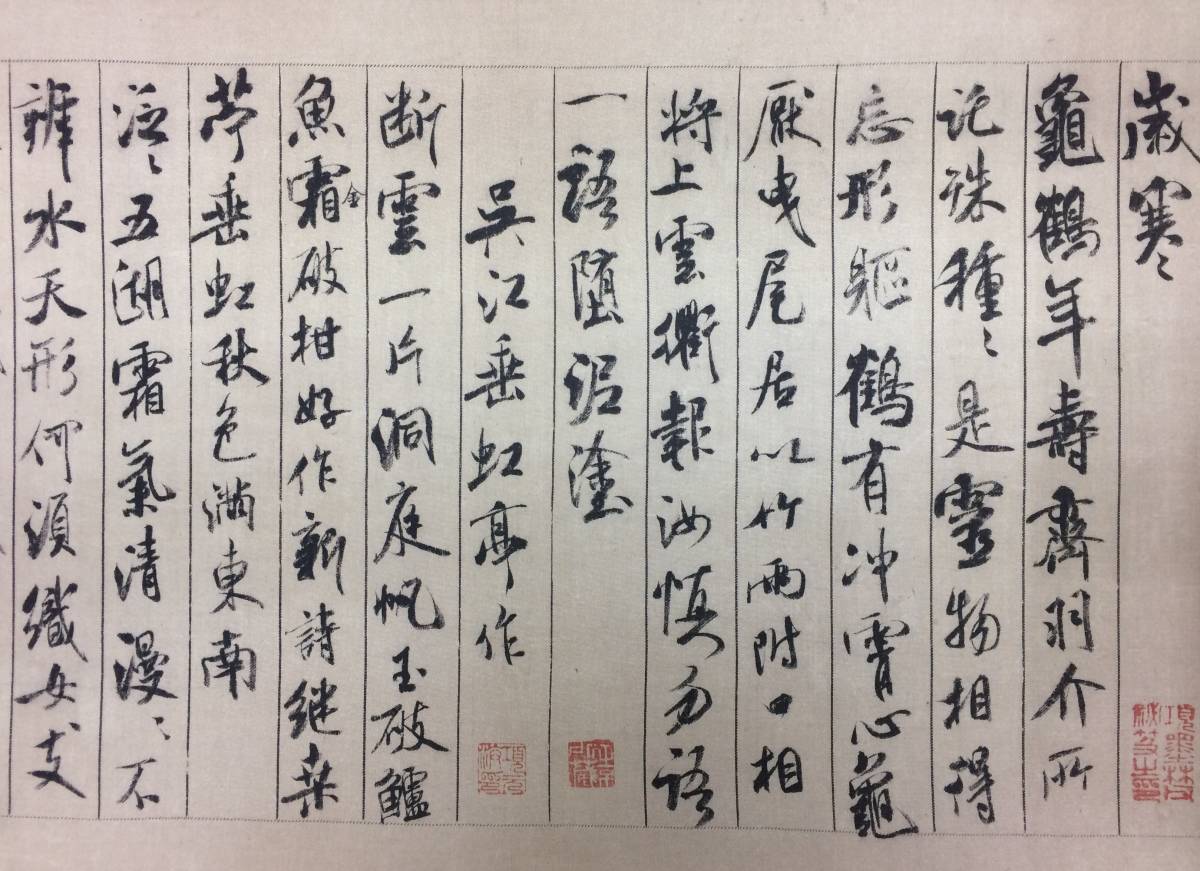 歲寒〻
龜鶴年壽齊羽介所
託殊種〻是靈物相得
忘形軀鶴有沖霄心龜
厭曳尾居以竹兩附口相
將上雲衢報汝慎勿語
一語墮泥塗
吳江垂虹亭作
斷雲一片洞庭帆玉破鱸
魚霜金破柑好作新詩繼桑
苧垂虹秋色滿東南
泛〻五湖霜氣清漫〻不
辨水天形何須織女支